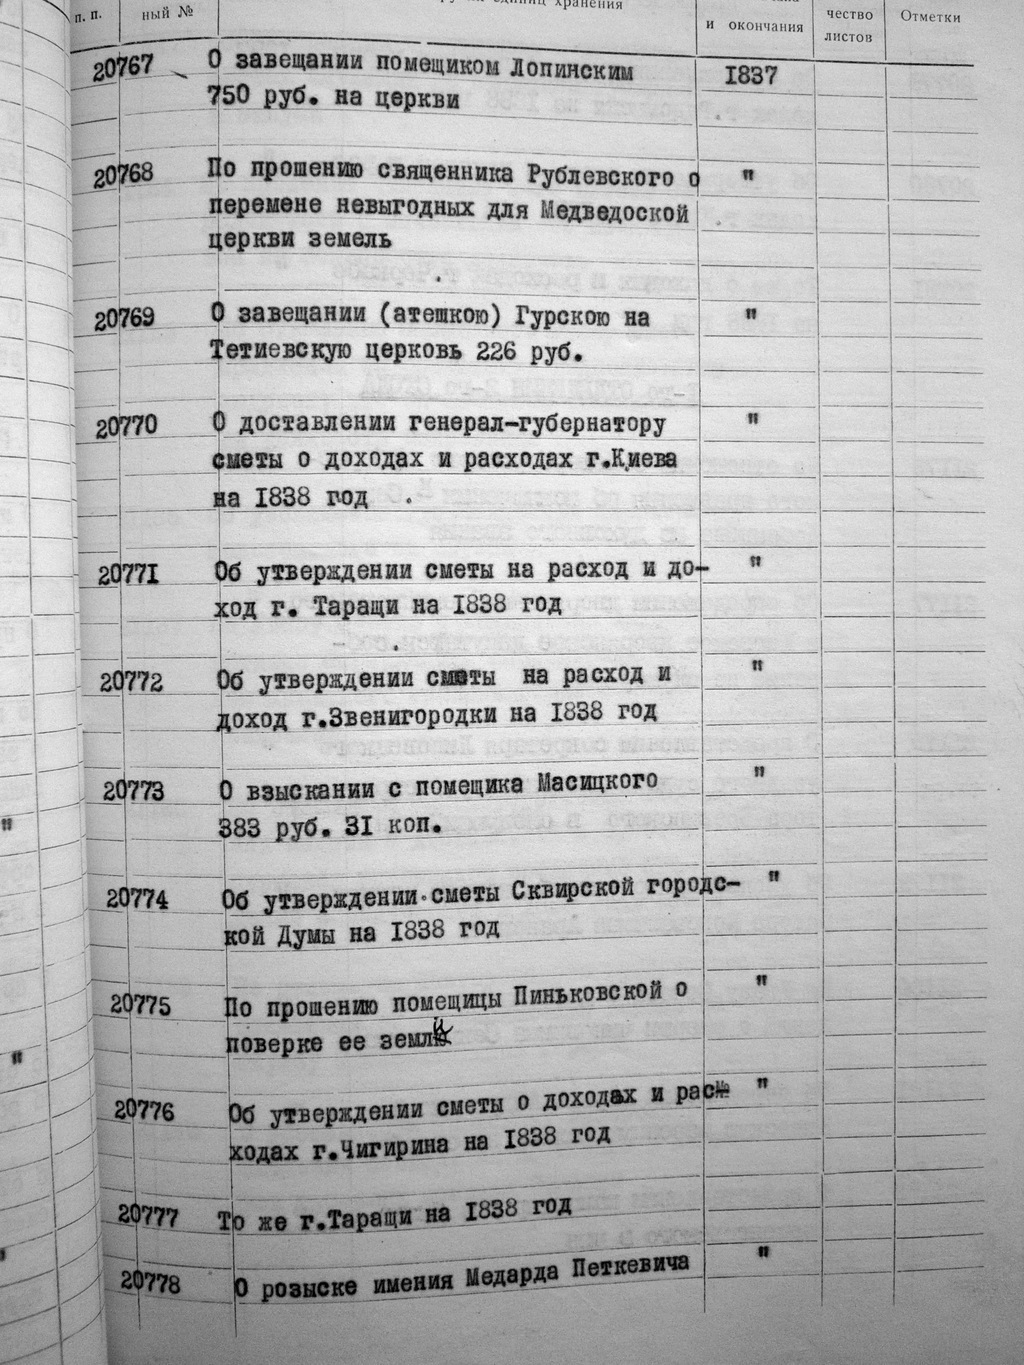 п. п.
ный №
единиц хранения
и окончания
чество
листов
Отметки
20767 О завещании помещиком Лопинским 1837
750 руб. на церкви
20768 По прошению священника Рублевского о "
перемене невыгодных для Медведоской
церкви земель
20769 О завещании (атешкою) Гурскою на "
Тетиевскую церковь 226 руб.
20770 О доставлении генерал-губернатору "
сметы о доходах и расходах г.Киева
на 1838 год
20771 Об утверждении сметы на расход и до- "
ход г. Таращи на 1838 год
20772 Об утверждении сметы на расход и "
доход г.Звенигородки на 1838 год
20773 О взыскании с помещика Масицкого "
383 руб. 31 коп.
20774 Об утверждении сметы Сквирской городс- "
кой Думы на 1838 год
20775 По прошению помещицы Пиньковской о "
поверке ее земли
20776 Об утверждении сметы о доходах и рас- "
ходах г.Чигирина на 1838 год
20777 То же г.Таращи на 1838 год
20778 О розыске имения Медарда Петкевича "